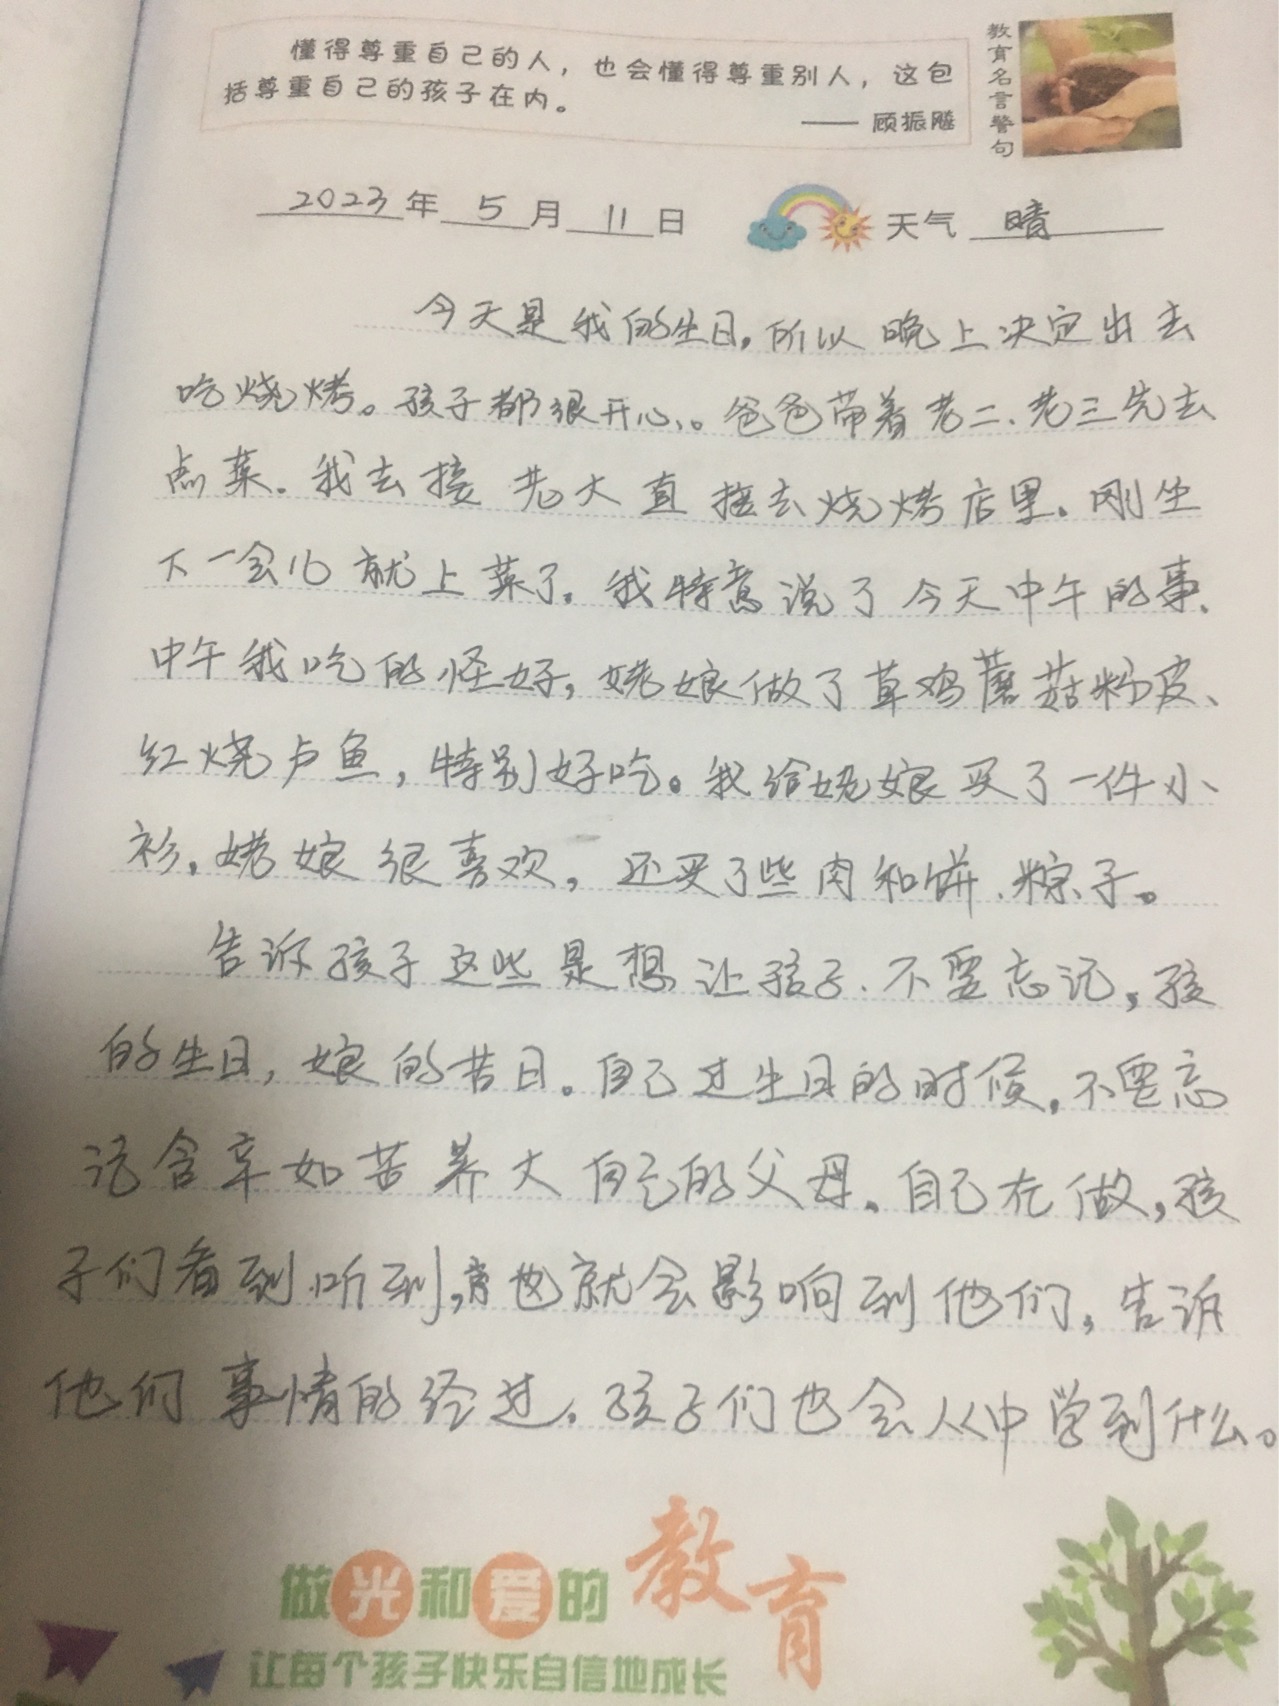 懂得尊重自己的人，也会懂得尊重别人，这包
括尊重自己的孩子在内。
—— 顾振飚
教育名言警句
2023年 5月 11日 天气 晴
今天是我的生日，所以晚上决定出去
吃烧烤。孩子都很开心。爸爸带着老二、老三先去
点菜。我去接老大直接去烧烤店里。刚坐
下一会儿就上菜了。我特意说了今天中午的事、
中午我吃的怪好，姥娘做了草鸡蘑菇粉皮、
红烧卢鱼，特别好吃。我给姥娘买了一件小
衫，姥娘很喜欢，还买了些肉和饼、粽子。
告诉孩子这些是想让孩子、不要忘记，孩
的生日，娘的苦日。自己过生日的时候，不要忘
记含辛如苦养大自己的父母。自己在做，孩
子们看到听到，也就会影响到他们，告诉
他们事情的经过，孩子们也会从中学到什么。
做光和爱的教育
让每个孩子快乐自信地成长